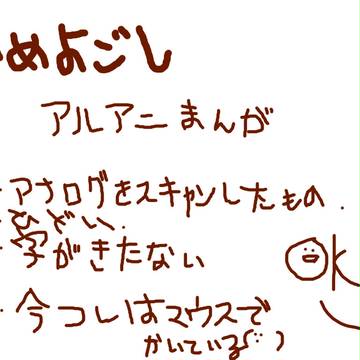 めよごし
アルアニまんが
・アナログをスキャンしたもの.
・ひどい.
・字がきたない
OK
・今コレはマウスで
かいている